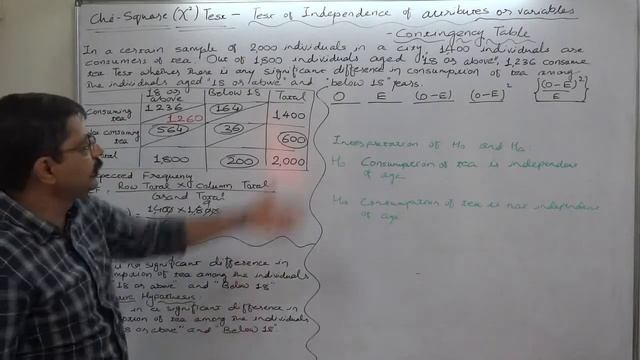 Chi-Square (X²) Test - Test of Independence of attributes or variables
- Contingency Table
In a certain sample of 2,000 individuals in a city, 1400 individuals are
consumers of tea. Out of 1,800 individuals aged "18 or above", 1,236 consume
tea. Test whether there is any significant difference in consumption of tea among
the individuals aged "18 or above" and "below 18" years.
18 or above Below 18 Total
Consuming tea 1236 164 1,400
1260
consuming tea 564 36 600
Total 1,800 200 2,000
Frequency
Row Total X Column Total
Grand Total
1400 x 1800
is no significant difference in
of tea among the individuals
18 or above" and "Below 18"
Hypothesis:
is a significant difference in
of tea among the individuals
18 or above" and "Below 18"
O E (O-E) (O-E)² {(O-E)²/E}
Interpretation of Ho and Ha
Ho Consumption of tea is independent
of age
Ha Consumption of tea is not independent
of age